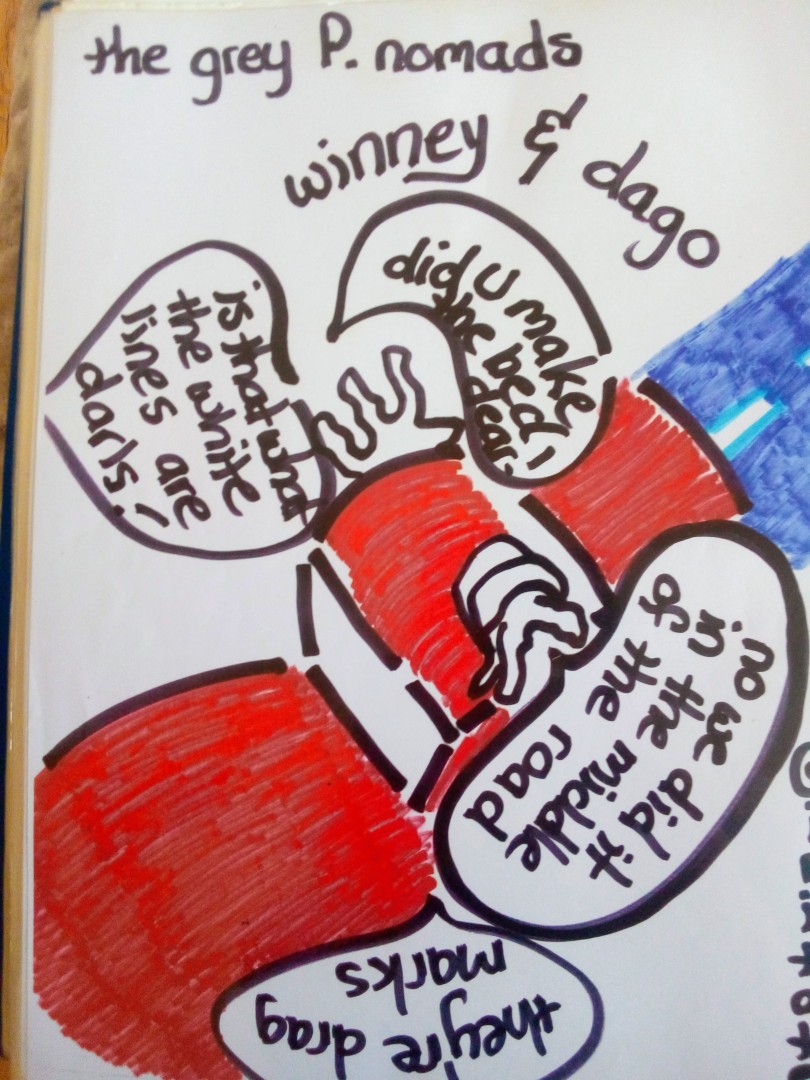 the grey P. nomads
winney & dago
did U make
the bed,
dear.
no we did it
in the middle
of the road
is that what
the white
lines are
darls!
they're drag
marks